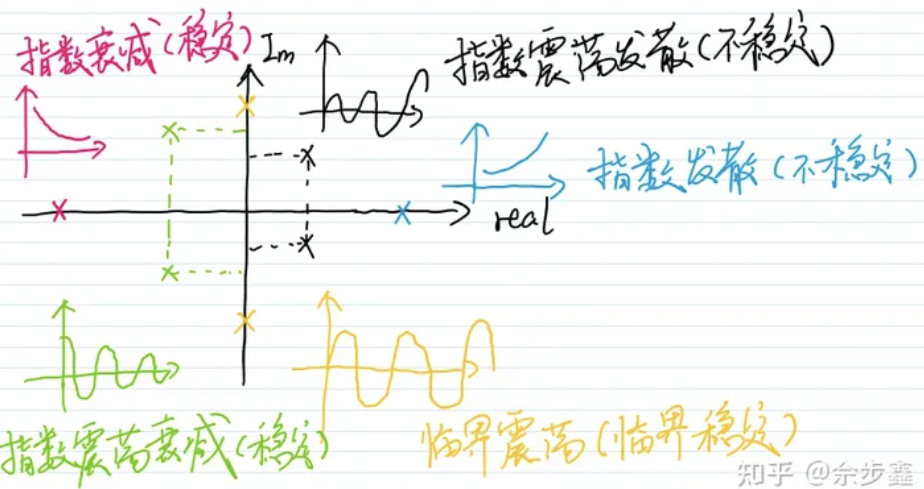 指数衰减(稳定)
Im
指数震荡发散(不稳定)
指数发散(不稳定)
real
指数震荡衰减(稳定)
临界震荡(临界稳定)
知乎 @余步鑫